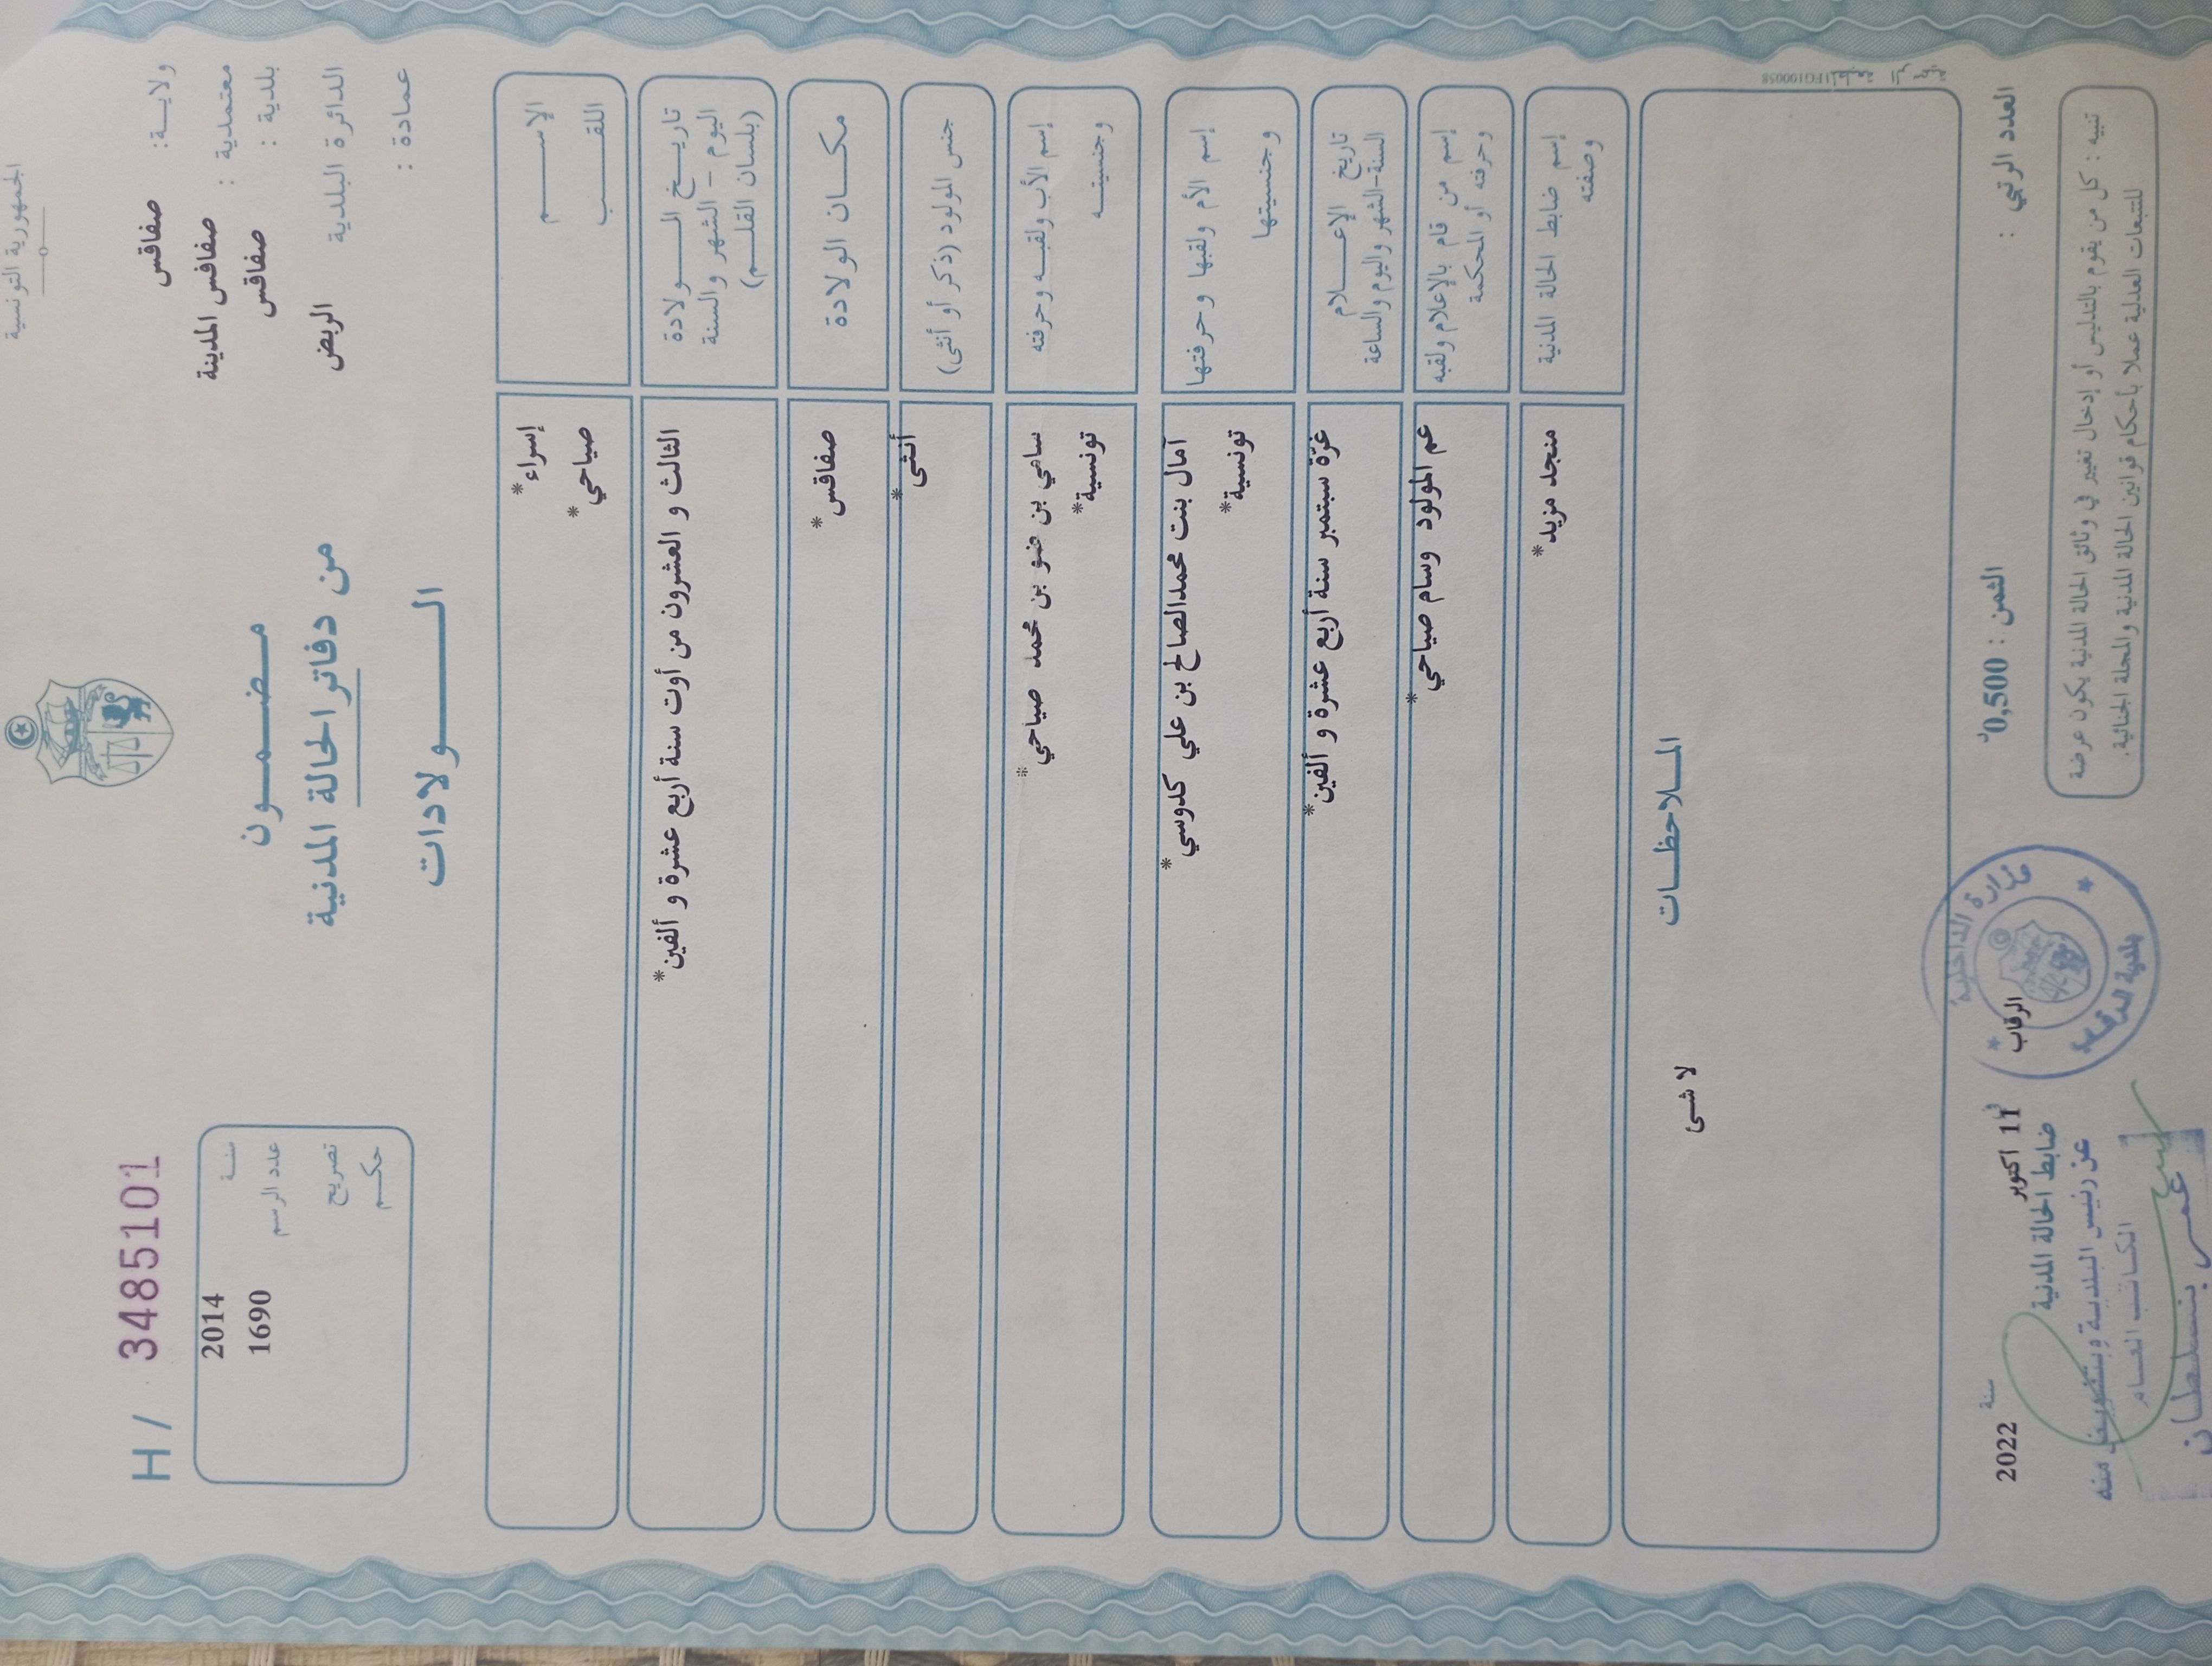 الجمهورية التونسية
ولايـة: صفاقس
معتمدية : صفاقس المدينة
بلدية : صفاقس
الدائرة البلدية الربض
عمادة :
H / 3485101
سنـة 2014
عدد الرسم 1690
تصريح
حكـم
مـضـمـون
من دفاتر الحالة المدنية
الـــولادات
الإســـم إسراء*
اللقـــب صياحي*
تاريـــخ الـــولادة الثالث و العشرون من أوت سنة أربع عشرة و ألفين*
اليوم - الشهر والسنة
(بلسان القلـم)
مكـــان الولادة صفاقس*
جنس المولود (ذكر أو أنثى) أنثى*
إسم الأب ولقبـه وحرفته سامي بن ضو بن محمد صياحي*
وجنسيتـه تونسية*
إسم الأم ولقبها وحرفتها آمال بنت محمدالصالح بن علي كدوسي*
وجنسيتها تونسية*
تاريخ الإعـــلام غرّة سبتمبر سنة أربع عشرة و ألفين*
السنة-الشهر واليوم والساعة
إسم من قام بالإعلام ولقبه عم المولود وسام صياحي*
وحرفته أو المحكمة
إسم ضابط الحالة المدنية منجد مزيد*
وصفته
المـلاحظـــات
لا شىء
العدد الرتبي :
الثمن : 0,500د
الرقاب في 11 اكتوبر سنة 2022
ضابط الحالة المدنية
تنبيه : كل من يقوم بالتدليس أو إدخال تغيير في وثائق الحالة المدنية يكون عرضة
للتتبعات العدلية عملا بأحكام قوانين الحالة المدنية والمجلة الجنائية.
وزارة الداخلية
بلدية الرقاب
عن رئيس البلدية وبتفويض منه
الكاتب العام
عمر بنسلطان